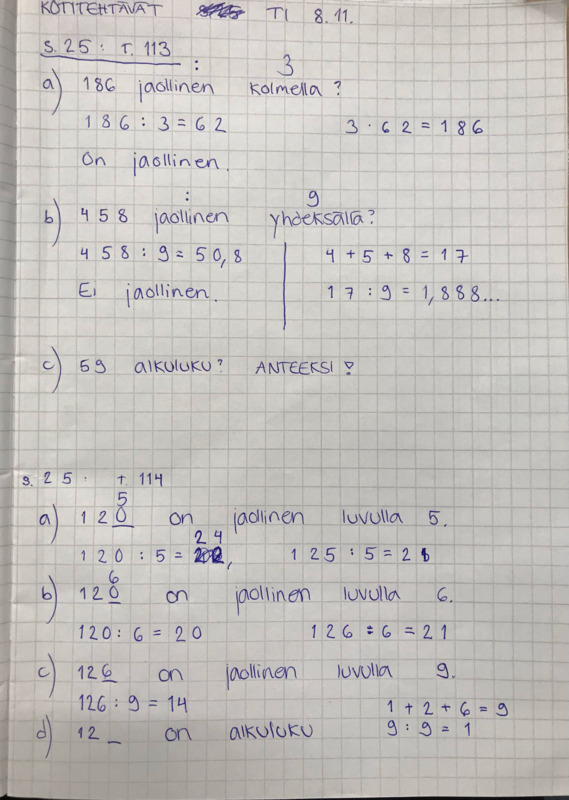 KOTITEHTÄVÄT TI 8.11.
s. 25 : T. 113
: 3
a) 186 jaollinen kolmella ?
186 : 3 = 62 3 · 62 = 186
On jaollinen.
: 9
b) 458 jaollinen yhdeksällä?
458 : 9 = 50,8 4 + 5 + 8 = 17
Ei jaollinen. 17 : 9 = 1,888...
c) 59 alkuluku? ANTEEKSI !
s. 25 : T. 114
5
a) 120 on jaollinen luvulla 5.
24
120 : 5 = , 125 : 5 = 2
6
b) 120 on jaollinen luvulla 6.
120 : 6 = 20 126 : 6 = 21
c) 126 on jaollinen luvulla 9.
126 : 9 = 14 1 + 2 + 6 = 9
d) 12 _ on alkuluku 9 : 9 = 1